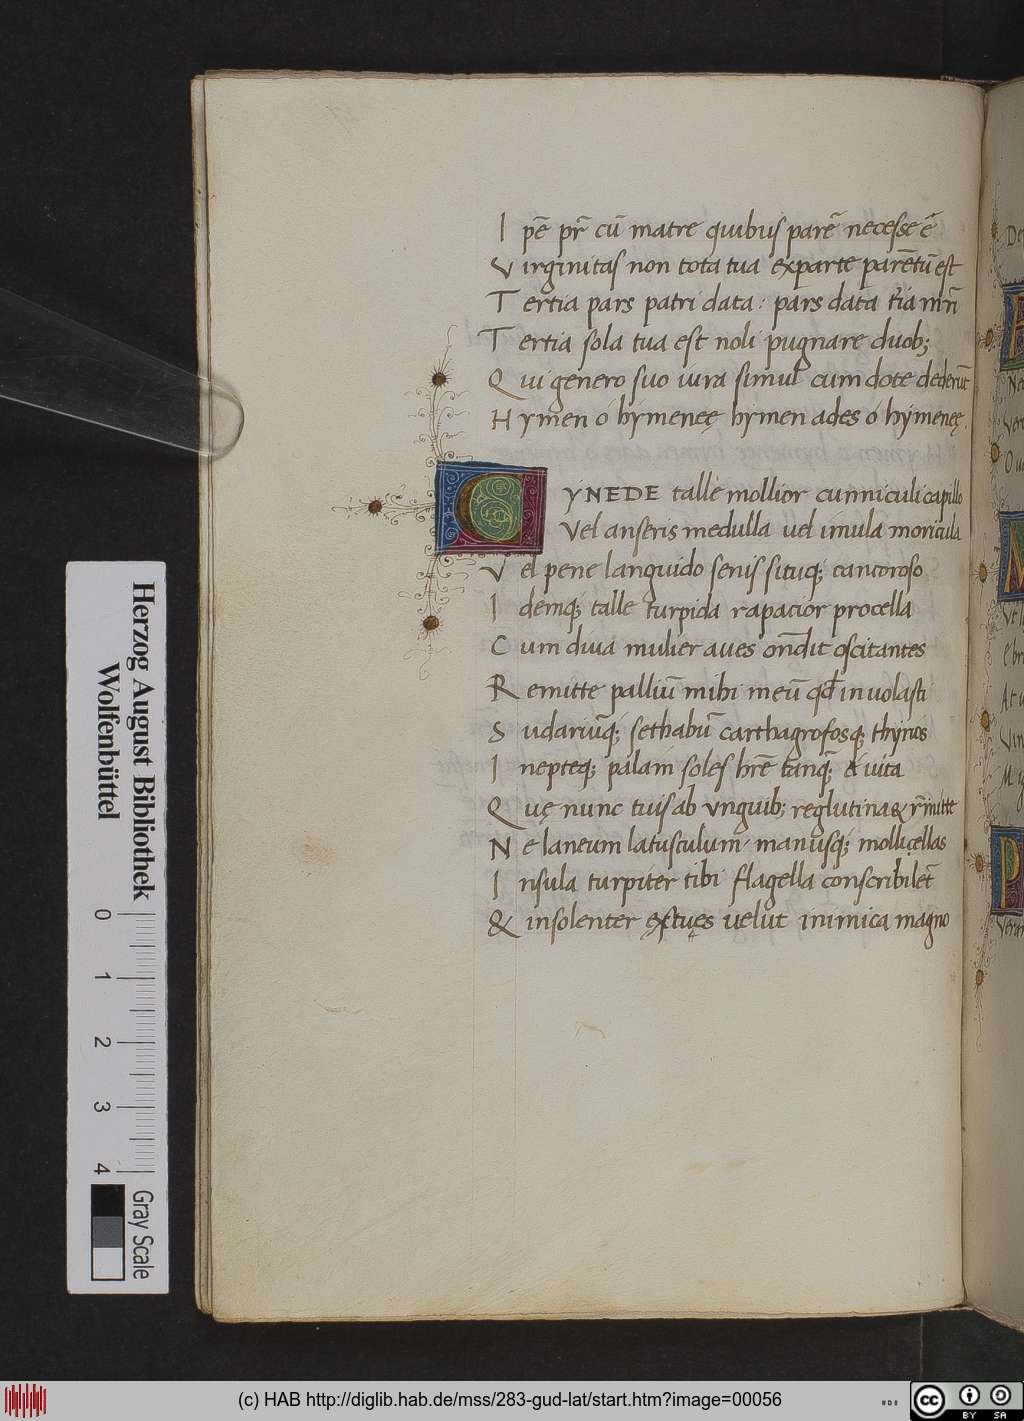 I pē pr̄ cū matre quibus parē necesse ē
Virginitas non tota tua exparte parētū est
Tertia pars patri data: pars data t̄ia mr̄i
Tertia sola tua est noli pugnare duob;
Qui genero suo iura simul cum dote dederūt
Hymen ó hymeneę hymen ades ó hymeneę.
CYNEDE talle mollior cunniculi capillo
Vel anseris medulla uel imula moricula
Vel pene languido senis situq; cancoroso
Idemq; talle turpida rapacior procella
Cum diua mulier aues on̄dit oscitantes
Remitte palliū mihi meū qd̄ inuolasti
Sudariūq; sethabū carthagrofosq; thynos
Inepteq; palam soles hr̄e tanq̄; & uita
Quę nunc tuis ab vnguib; reglutina & r̄mitte
Ne laneum latusculum manusq; mollicellas
Insula turpiter tibi flagella conscribilet̄
& insolenter ęstuęs uelut inimica magno
Herzog August Bibliothek
Wolfenbüttel
0 1 2 3 4
Gray Scale
(c) HAB http://diglib.hab.de/mss/283-gud-lat/start.htm?image=00056
cc BY SA